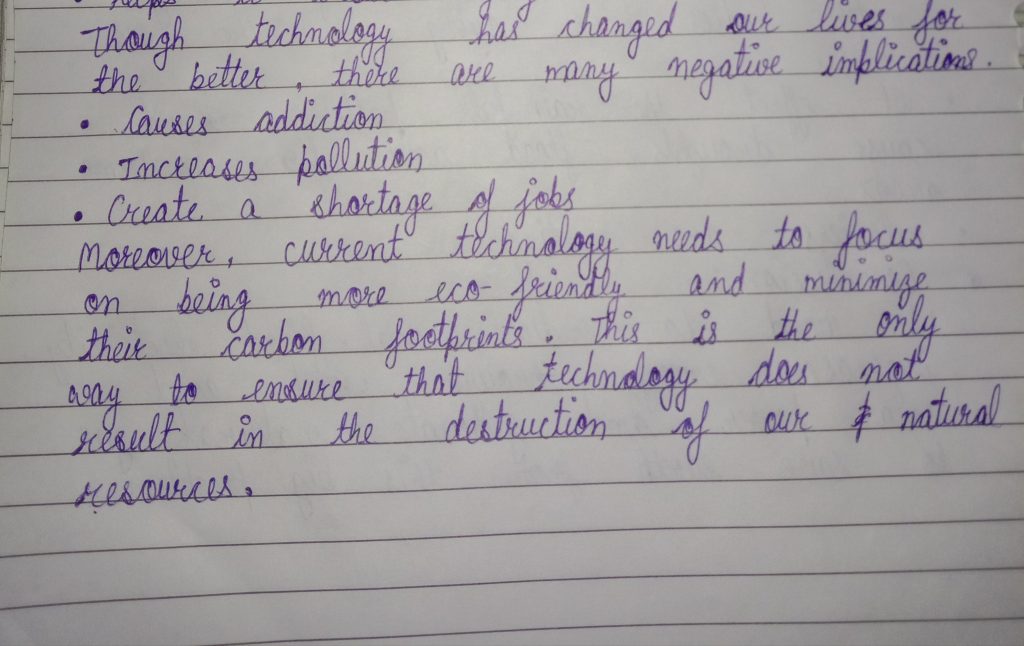 Though technology has changed our lives for
the better, there are many negative implications.
• Causes addiction
• Increases pollution
• Create a shortage of jobs
Moreover, current technology needs to focus
on being more eco-friendly and minimize
their carbon footprints. This is the only
way to ensure that technology does not
result in the destruction of our natural
resources.